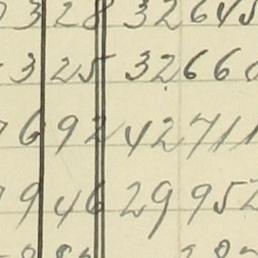 3 28 32645
3 25 3266
6 92 42711
9 46 29952